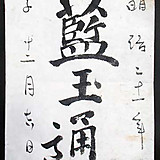 明治二十一年
藍玉通
十二月吉日